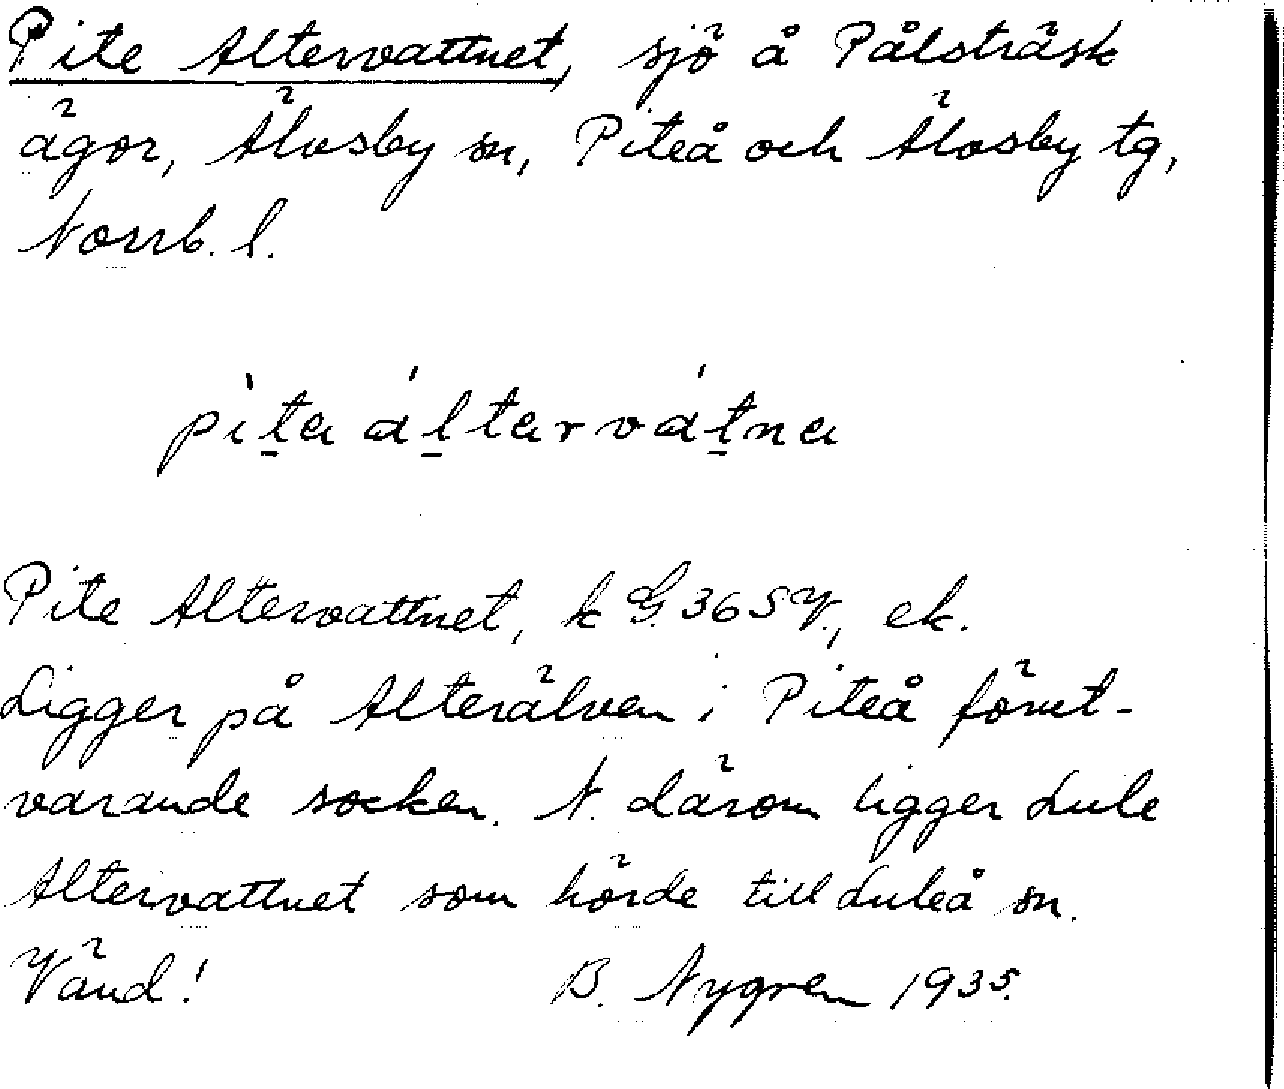 Pite Altervattnet, sjö å Pålsträsk
ägor, Älvsby sn, Piteå och Älvsby tg,
Norrb. l.
pita áltarvátna
Pite Altervattnet, k G. 365 V., ek.
Ligger på Alterälven i Piteå förut-
varande socken. N. därom ligger Lule
Altervattnet som hörde till Luleå sn.
Vänd! B. Nygren 1935.